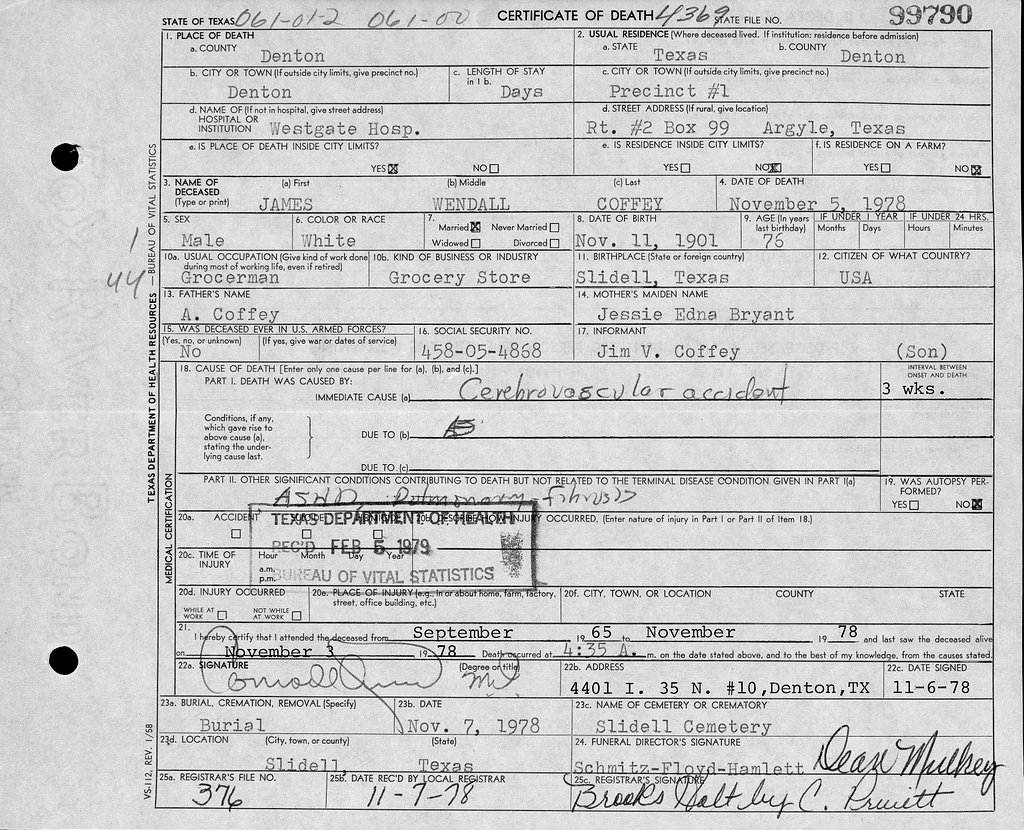 STATE OF TEXAS 061-01-2 061-00 CERTIFICATE OF DEATH 4369 STATE FILE NO. 99790
1. PLACE OF DEATH
a. COUNTY
Denton
2. USUAL RESIDENCE (Where deceased lived. If institution: residence before admission)
a. STATE b. COUNTY
Texas Denton
b. CITY OR TOWN (If outside city limits, give precinct no.)
Denton
c. LENGTH OF STAY in 1 b.
Days
c. CITY OR TOWN (If outside city limits, give precinct no.)
Precinct #1
d. NAME OF (If not in hospital, give street address)
HOSPITAL OR
INSTITUTION Westgate Hosp.
d. STREET ADDRESS (If rural, give location)
Rt. #2 Box 99 Argyle, Texas
e. IS PLACE OF DEATH INSIDE CITY LIMITS?
YES ☒ NO ☐
e. IS RESIDENCE INSIDE CITY LIMITS?
YES ☐ NO ☒
f. IS RESIDENCE ON A FARM?
YES ☐ NO ☒
3. NAME OF DECEASED (Type or print)
(a) First (b) Middle (c) Last
JAMES WENDALL COFFEY
4. DATE OF DEATH
November 5, 1978
5. SEX
Male
6. COLOR OR RACE
White
7.
Married ☒ Never Married ☐
Widowed ☐ Divorced ☐
8. DATE OF BIRTH
Nov. 11, 1901
9. AGE (In years last birthday)
76
IF UNDER 1 YEAR IF UNDER 24 HRS.
Months Days Hours Minutes
10a. USUAL OCCUPATION (Give kind of work done
during most of working life, even if retired)
Grocerman
10b. KIND OF BUSINESS OR INDUSTRY
Grocery Store
11. BIRTHPLACE (State or foreign country)
Slidell, Texas
12. CITIZEN OF WHAT COUNTRY?
USA
13. FATHER'S NAME
A. Coffey
14. MOTHER'S MAIDEN NAME
Jessie Edna Bryant
15. WAS DECEASED EVER IN U.S. ARMED FORCES?
(Yes, no, or unknown) (If yes, give war or dates of service)
No
16. SOCIAL SECURITY NO.
458-05-4868
17. INFORMANT
Jim V. Coffey (Son)
18. CAUSE OF DEATH [Enter only one cause per line for (a), (b), and (c).]
PART I. DEATH WAS CAUSED BY:
IMMEDIATE CAUSE (a) Cerebrovascular accident
INTERVAL BETWEEN
ONSET AND DEATH
3 wks.
Conditions, if any,
which gave rise to
above cause (a),
stating the under-
lying cause last.
DUE TO (b)
DUE TO (c)
PART II. OTHER SIGNIFICANT CONDITIONS CONTRIBUTING TO DEATH BUT NOT RELATED TO THE TERMINAL DISEASE CONDITION GIVEN IN PART I(a)
ASHD, Pulmonary fibrosis
19. WAS AUTOPSY PER-
FORMED?
YES ☐ NO ☒
20a. ACCIDENT SUICIDE
20b. DESCRIBE HOW INJURY OCCURRED. (Enter nature of injury in Part I or Part II of Item 18.)
TEXAS DEPARTMENT OF HEALTH
REC'D FEB 5 1979
BUREAU OF VITAL STATISTICS
20c. TIME OF INJURY
Hour Month Day Year
a.m.
p.m.
20d. INJURY OCCURRED
WHILE AT WORK ☐ NOT WHILE AT WORK ☐
20e. PLACE OF INJURY (e.g., in or about home, farm, factory,
street, office building, etc.)
20f. CITY, TOWN, OR LOCATION COUNTY STATE
21.
I hereby certify that I attended the deceased from September 19 65 to November 19 78 and last saw the deceased alive
on November 3 19 78 Death occurred at 4:35 A. m. on the date stated above, and to the best of my knowledge, from the causes stated.
22a. SIGNATURE (Degree or title)
22b. ADDRESS
4401 I. 35 N. #10,Denton,TX
22c. DATE SIGNED
11-6-78
23a. BURIAL, CREMATION, REMOVAL (Specify)
Burial
23b. DATE
Nov. 7, 1978
23c. NAME OF CEMETERY OR CREMATORY
Slidell Cemetery
23d. LOCATION (City, town, or county) (State)
Slidell, Texas
24. FUNERAL DIRECTOR'S SIGNATURE
Schmitz-Floyd-Hamlett Dean Mulkey
25a. REGISTRAR'S FILE NO.
376
25b. DATE REC'D BY LOCAL REGISTRAR
11-7-78
25c. REGISTRAR'S SIGNATURE
Brooks Holt by C. Pruett
TEXAS DEPARTMENT OF HEALTH RESOURCES — BUREAU OF VITAL STATISTICS
1
44
MEDICAL CERTIFICATION
VS-112, REV. 1/58